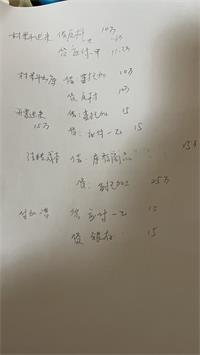 材料进来 借原材料 10万
贷应付-甲 11.3万
材料出库 借:委托加 10万
贷 原材料 10万
开票进来 借:委托加 15
15万 贷:应付-乙 15
结转成本 借:库存商品 25万
贷:委托加工 25万
付加工费 借 应付-乙 15
贷 银存 15